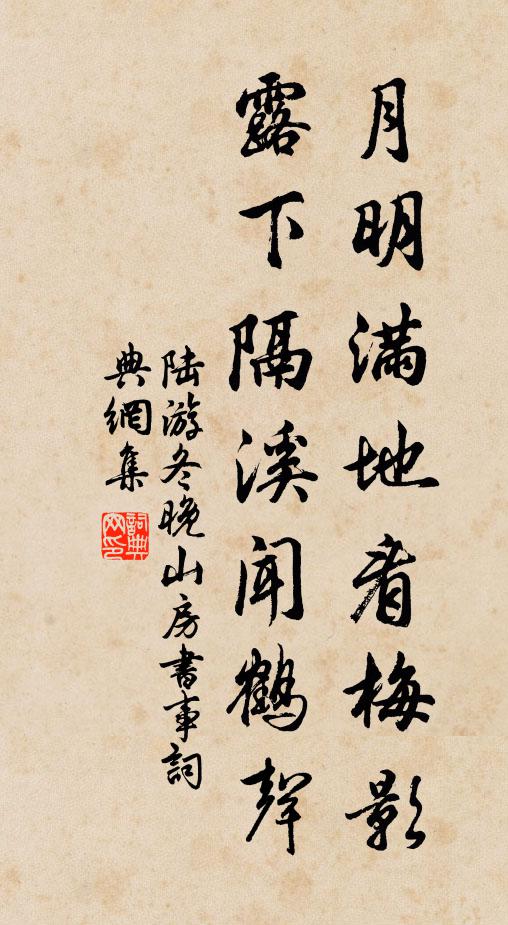 月明满地看梅影
露下隔溪闻鹤声
陆游冬晚山房书事词
典網集
詞典網印